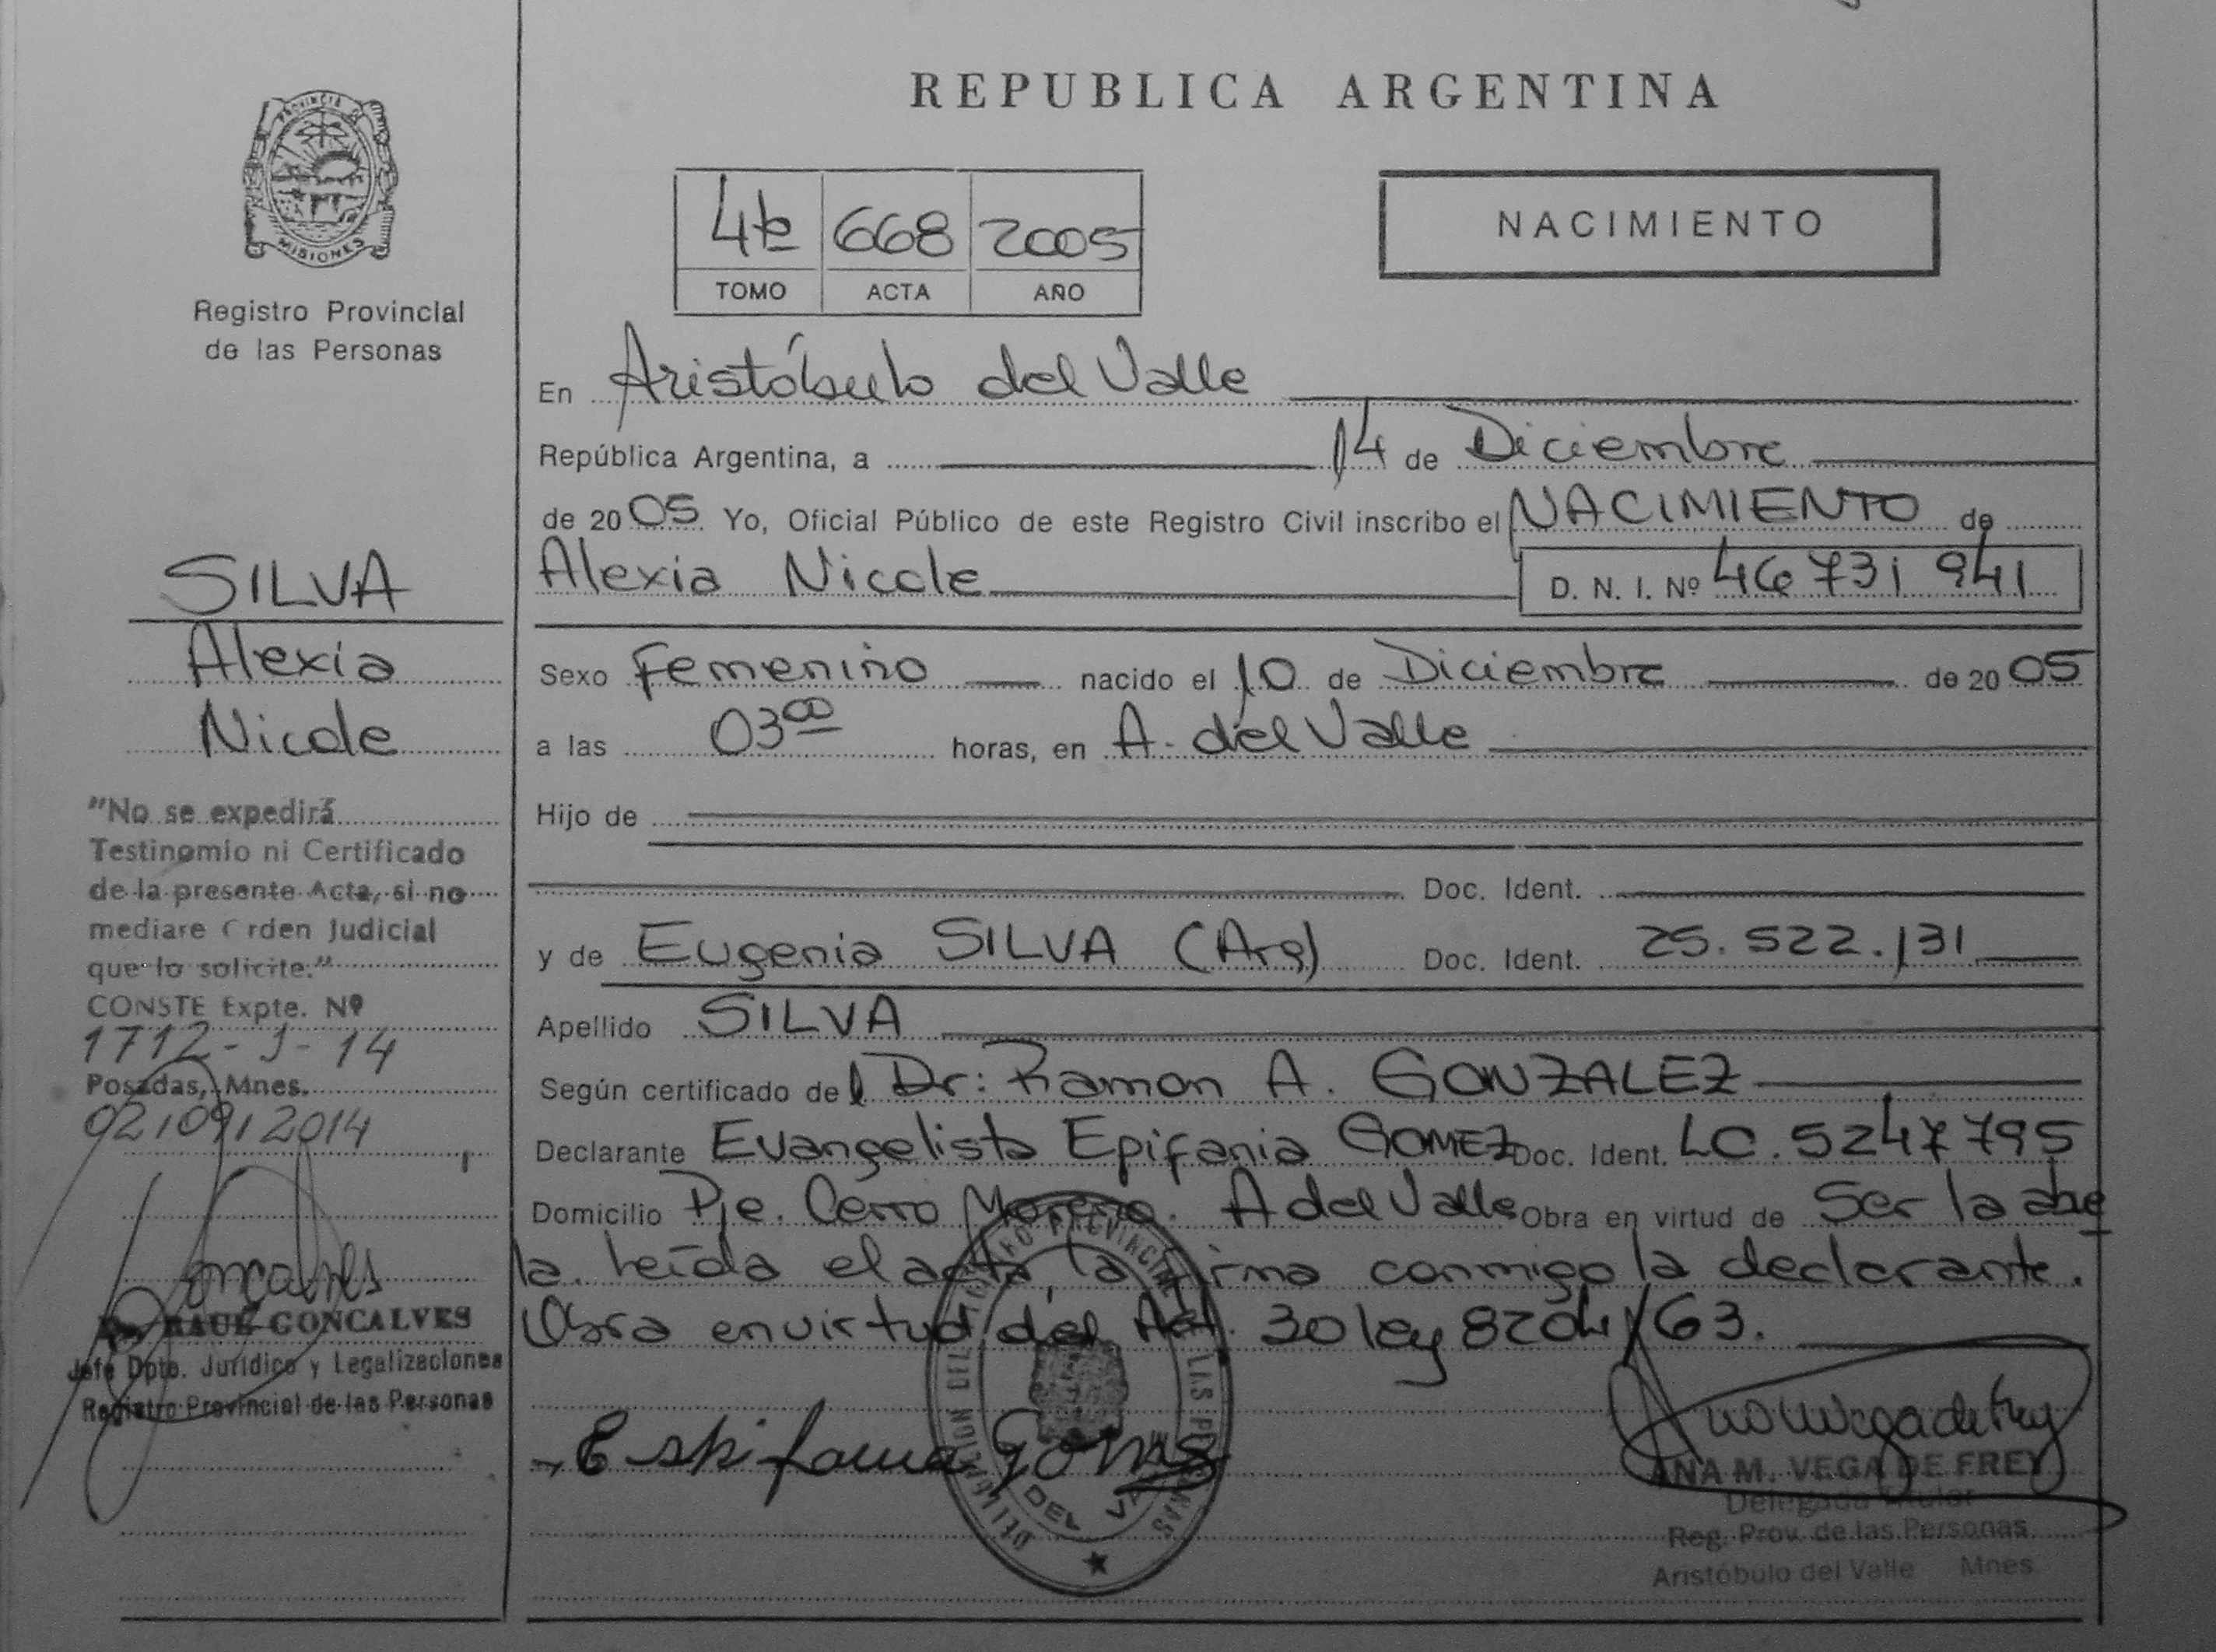 PROVINCIA DE
MISIONES
Registro Provincial
de las Personas
SILVA
Alexia
Nicole
"No se expedirá
Testinomio ni Certificado
de la presente Acta, si no
mediare Orden Judicial
que lo solicite."
CONSTE Expte. Nº
1712-J-14
Posadas, Mnes.
02/09/2014
Goncalves
RAUL GONCALVES
Jefe Dpto. Jurídico y Legalizaciones
Registro Provincial de las Personas
REPUBLICA ARGENTINA
4to 668 2005
TOMO ACTA AÑO
NACIMIENTO
En Aristóbulo del Valle
República Argentina, a 14 de Diciembre
de 2005 Yo, Oficial Público de este Registro Civil inscribo el NACIMIENTO de
Alexia Nicole D. N. I. Nº 46 731 941
Sexo Femenino nacido el 10 de Diciembre de 2005
a las 03 00 horas, en A. del Valle
Hijo de
Doc. Ident.
y de Eugenia SILVA (Arg) Doc. Ident. 25.522.131
Apellido SILVA
Según certificado del Dr: Ramon A. GONZALEZ
Declarante Evangelista Epifania GOMEZ Doc. Ident. LC. 5247795
Domicilio Pje. Cerro Moreno. A del Valle Obra en virtud de Ser la abue
la. leída el acta, la firma conmigo la declarante.
Obra en virtud del Art. 30 ley 8204/63.
DELEGACION DEL REGISTRO PROVINCIAL DE LAS PERSONAS
DEL VALLE
ANA M. VEGA DE FREY
Delegada Titular
Reg. Prov. de las Personas
Aristóbulo del Valle Mnes.